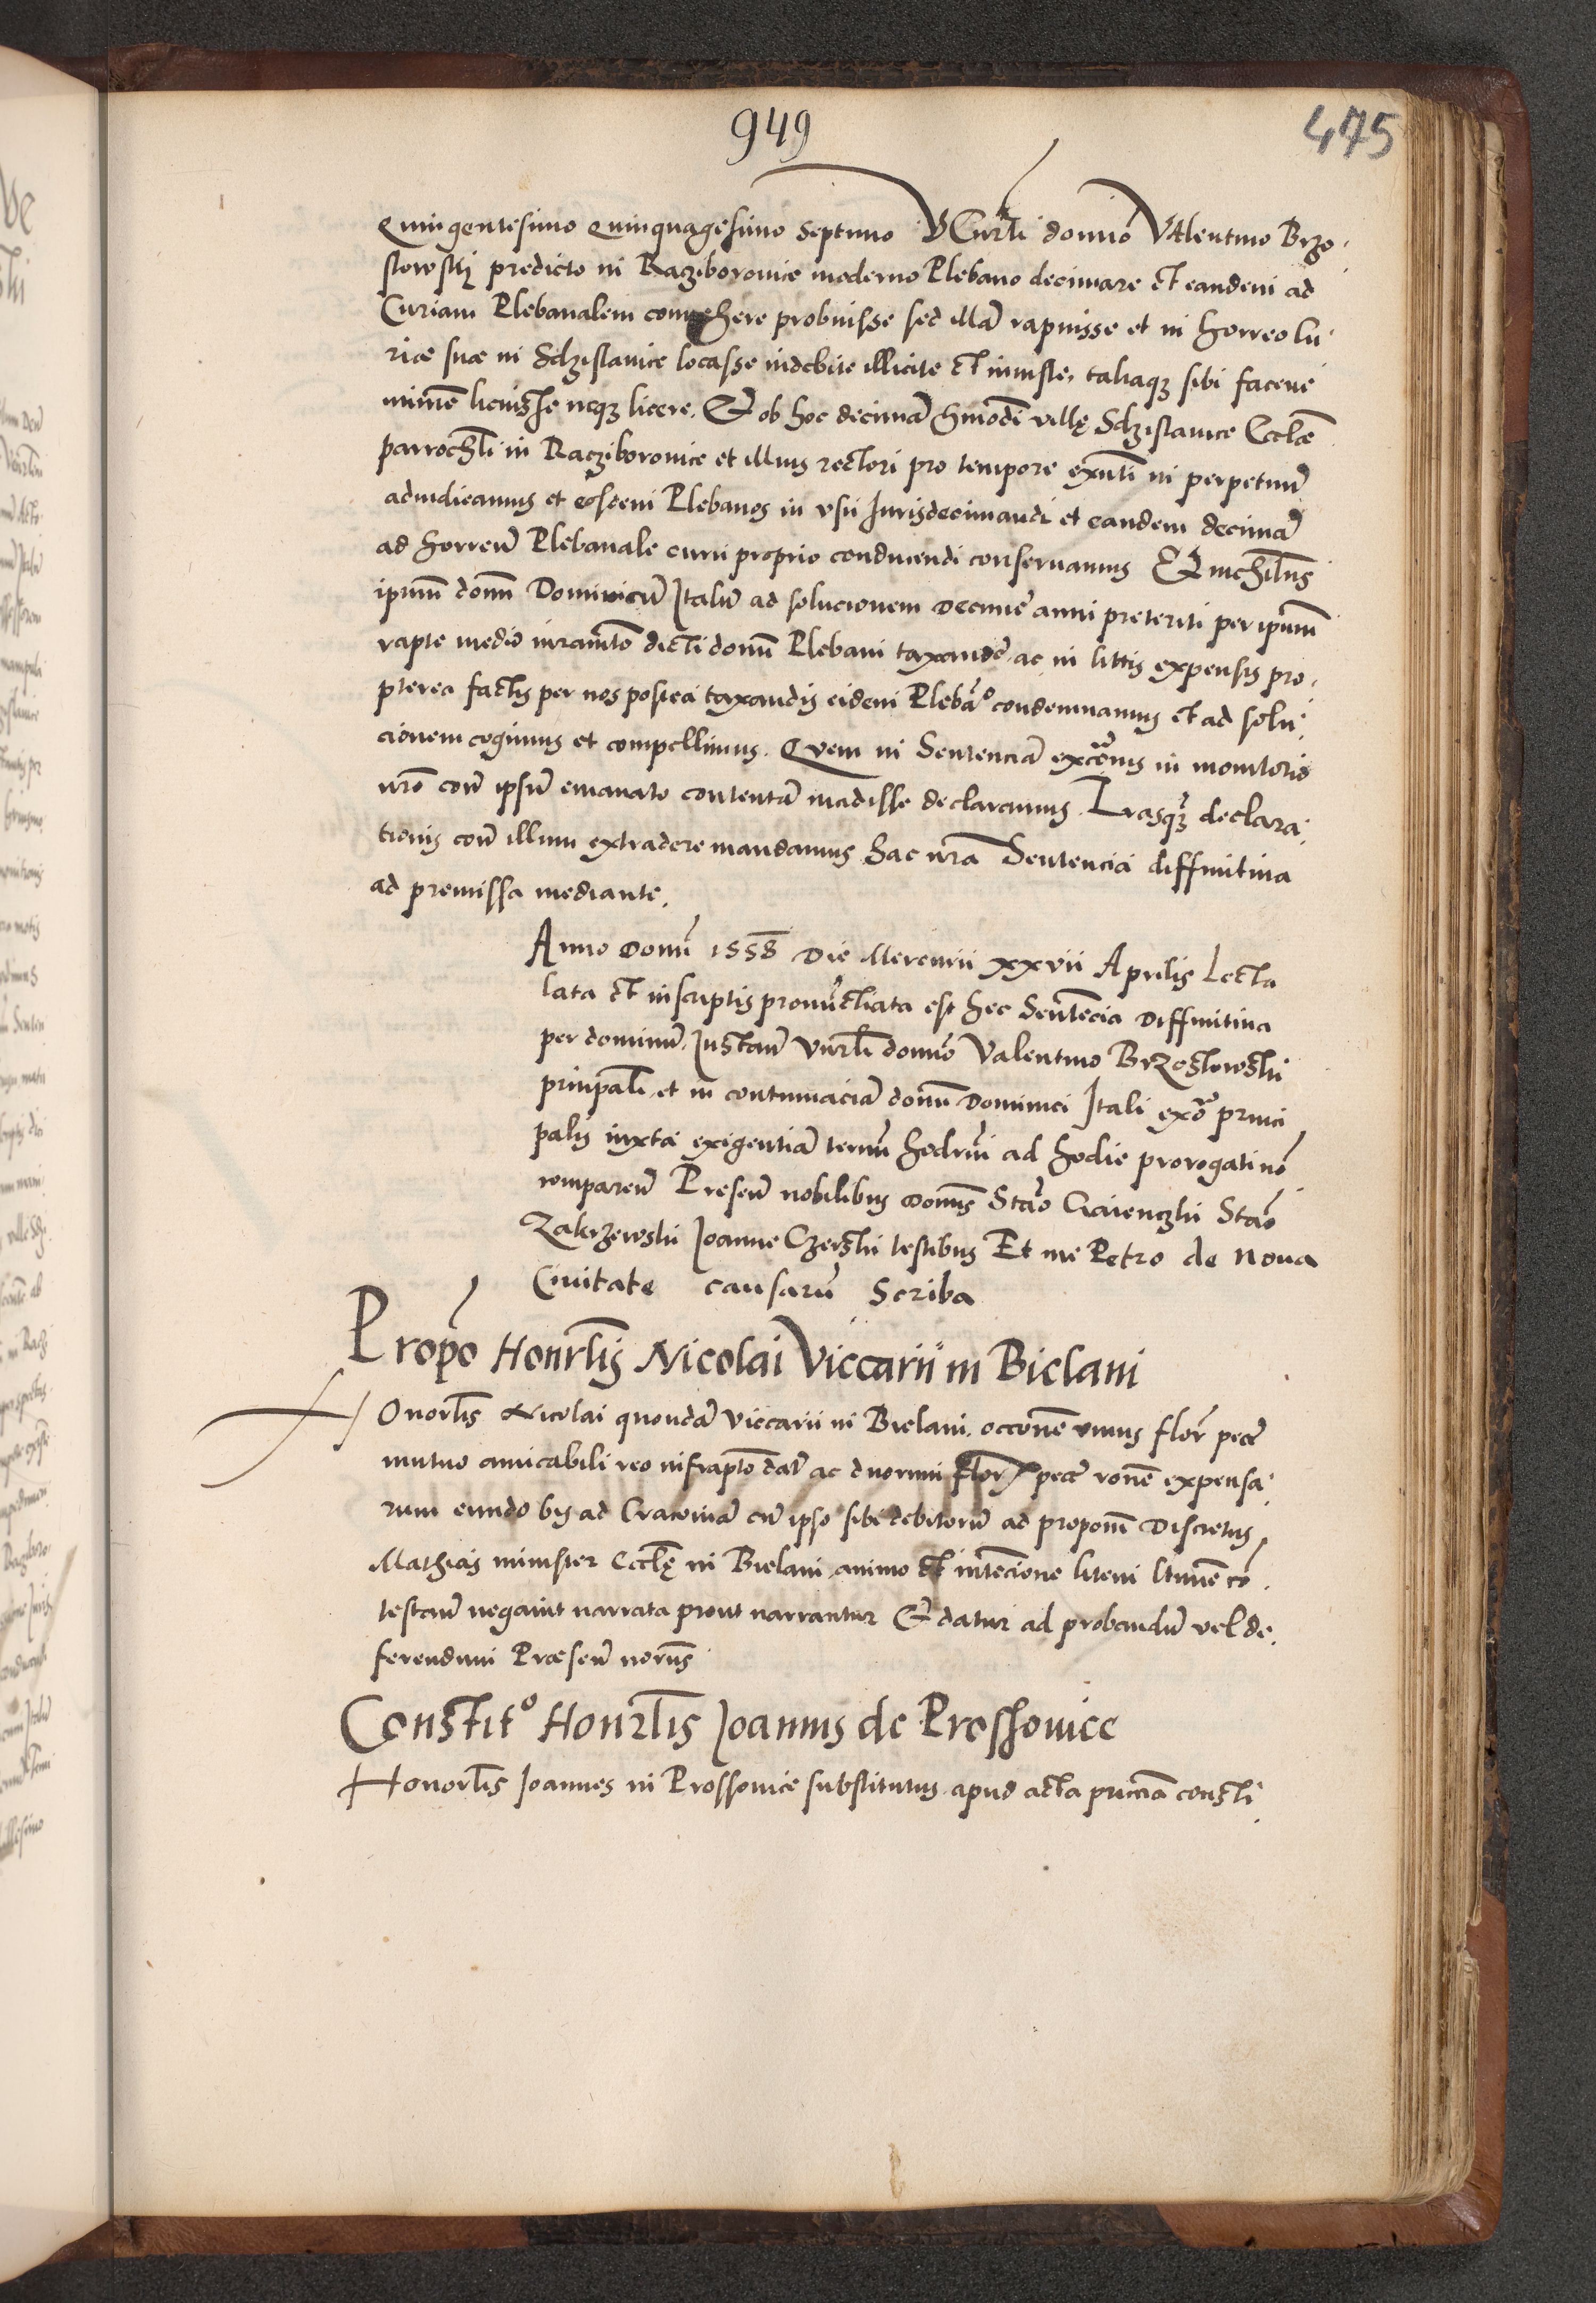 949
475
Quingentesimo Quinquagesimo Septimo VCurli domino Valentino Brzo
stowskj predicto in Raciborovice moderno Plebano decimare et eandem ad
Curiam Plebanalem convehere probuisse sed illā rapuisse et in horreo Cu
rie sue in Sdzislavice locasse indebite illicite et iniuste, taliaqʒ sibi facere
minīe licuisse neqʒ licere. Et ob hoc decimā hmōdi villę Sdzislavice Ecclae
parrochli in Raciborovice et illius rectori pro tempore exnti in perpetuū
adiudicamus et eosdem Plebanos in usu Iurisdecimandi et eandem decimā
ad horreū Plebanale curru proprio conducendi conservamus Et nichilus
ipsum donū Dominicū Italū ad solucionem Decime anni preteriti per ipsum
rapte medio iuramto dicti donī Plebani taxande ac in littis expensis pro
pterea factis per nos postea taxandis eidem Plebāo condemnamus et ad solu
cionem cogimus et compellimus. Quem in Sentenciā excōnis in monitorio
nrō con̄ ipsū emanato contentā incidisse declaramus. Lrasqʒ declara
tionis con̄ illum extradere mandamus hac nrā Sentencia diffinitiva
ad premissa mediante.
Anno Domī 1558 Die Mercurii xxvii Aprilis Lecta
lata et in scriptis pronūctiata est hec Sentēcia Diffinitiva
per dominū, Instan̄ Vnrli domīo Valentino Brzostowski
principali et in contumaciā donī Dominici Itali ex̄o princi
palis iuxta exigentiā termī hodrnī ad hodie prorogati nō
comparen̄ Presen̄ nobilibus Domīs Stāo Stāo
Zakrzewski Joanne Czerski testibus Et me Petro de Nova
Civitate causarū Scriba
Propō Honrlis Nicolai Viccarii in Bielani
Honorlis Nicolai quondā Viccarii in Bielani occōnē unius flor̄ pecē
mutuo amicabili reo infrapto dat̄ ac duorum flor pecē rōnē expensa
rum eundo bis ad Cracoviā cū ipso sibi debitorū ad propon̄ Discretus
Mathias minister Ecclę in Bielani animo et intēcione litem ltimē cō
testan̄ negavit narrata prout narrantur Et datur ad probandū vel de
ferendum Praesen̄ norūs
Constit° Honrlis Joannis de Prossovice
Honorlis Joannes in Prossovice substitutus apud acta pn̄ciā consti